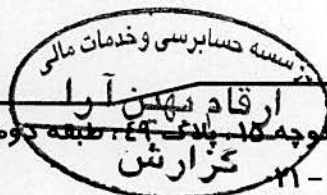 موسسه حسابرسی و خدمات مالی
ارقام بهین آرا
کوچه ۱۵، پلاک ۴۹، طبقه دوم
گزارش
۲۱-